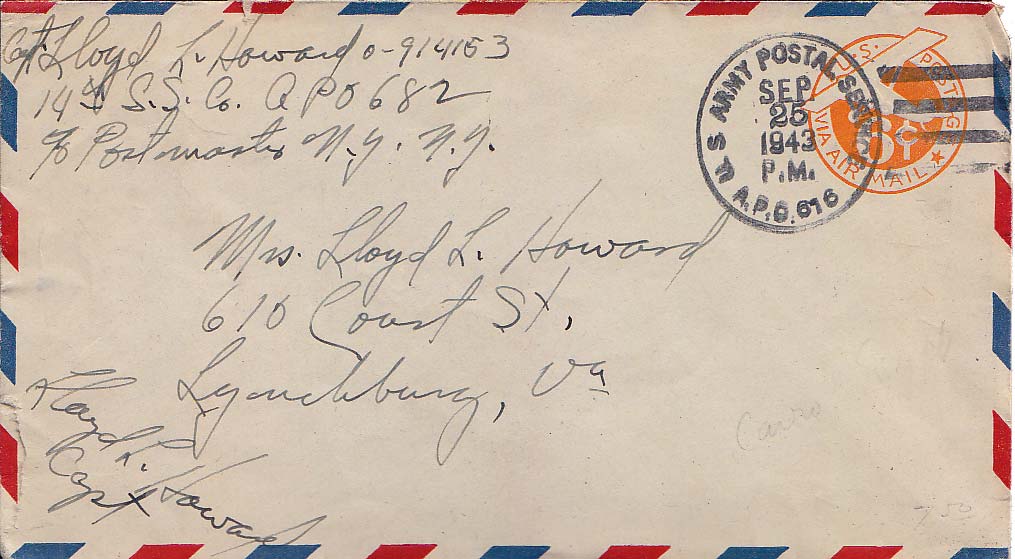 Capt. Lloyd L. Howard O-914153
14th S.S. Co. APO 682
℅ Postmaster N.Y. N.Y.
U.S. ARMY POSTAL SERVICE
SEP
25
1943
P.M.
A.P.O. 616
U.S. POSTAGE
6¢
VIA AIR MAIL
Mrs. Lloyd L. Howard
610 Court St,
Lynchburg, Va
Lloyd L. Howard
Capt
Cairo
7.50